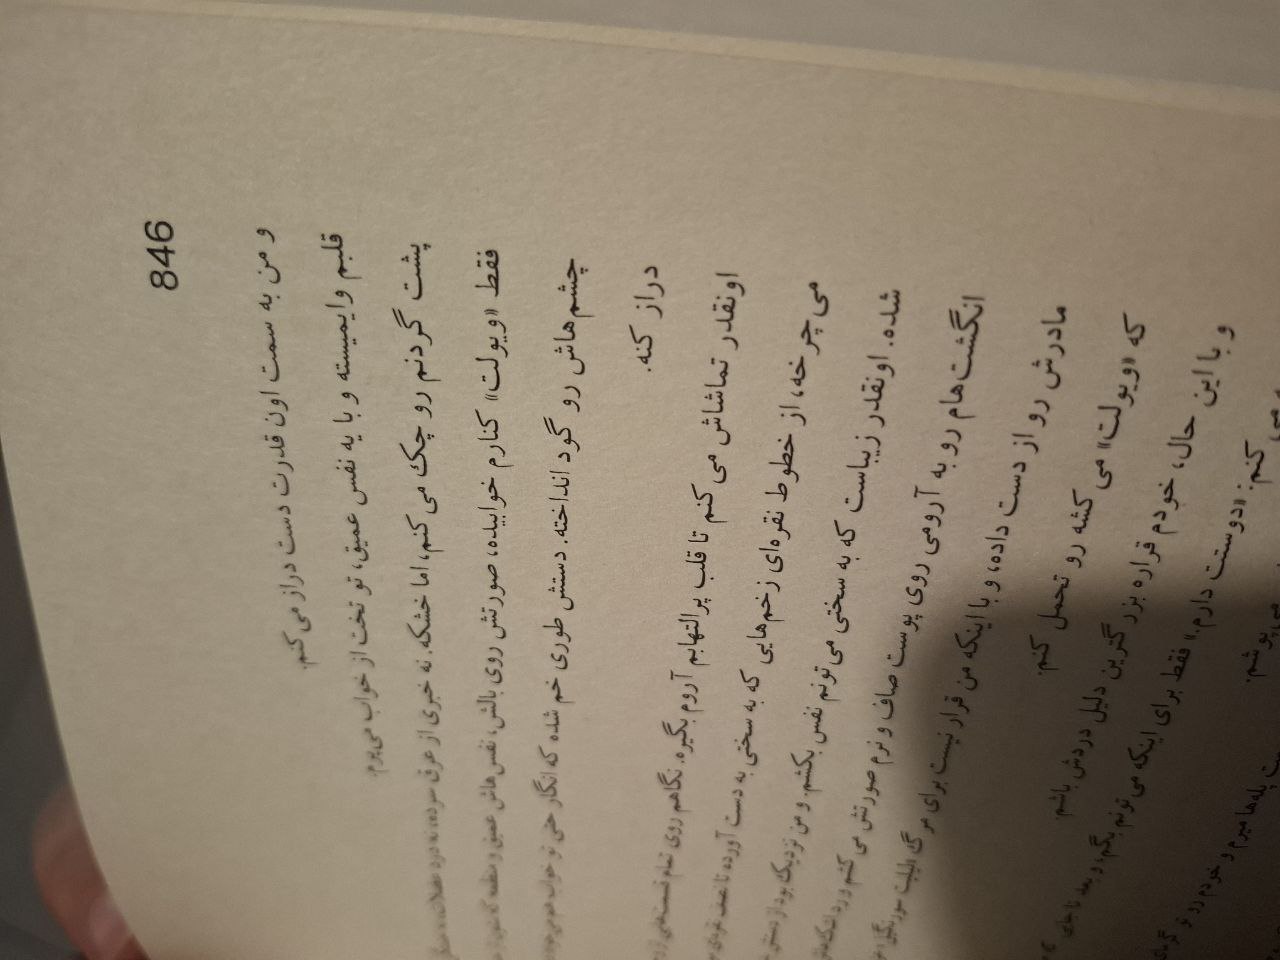 846
و من به سمت اون قدرت دست دراز می‌کنم.
قلبم وایمیسته و با یه نفس عمیق، تو تخت از خواب می‌پرم.
پشت گردنم رو چک می‌کنم، اما خشکه. نه خبری از عرق سرده، نه درد عضلات،
فقط «ویولت» کنارم خوابیده، صورتش روی بالش، نفس‌هاش عمیق و منظمه
چشم‌هاش رو گود انداخته. دستش طوری خم شده که انگار حتی تو خواب هم
دراز کنه.
اونقدر تماشاش می‌کنم تا قلب پرالتهابم آروم بگیره. نگاهم روی تمام
می‌چرخه، از خطوط نقره‌ای زخم‌هایی که به سختی به دست آورده تا نصف
شده. اونقدر زیباست که به سختی می‌تونم نفس بکشم. و من نزدیک بود از دستش
انگشت‌هام رو به آرومی روی پوست صاف و نرم صورتش می‌کشم و رد
مادرش رو از دست داده، و با اینکه من قرار نیست برای مرگ
که «ویولت» می‌کشه رو تحمل کنم.
و با این حال، خودم قراره بزرگترین دلیل دردش باشم.
می‌کنم: «دوستت دارم.» فقط برای اینکه می‌تونم بگم، و بعد تا جای
می‌پوشم.
پله‌ها میرم و خودم رو تو گرمای